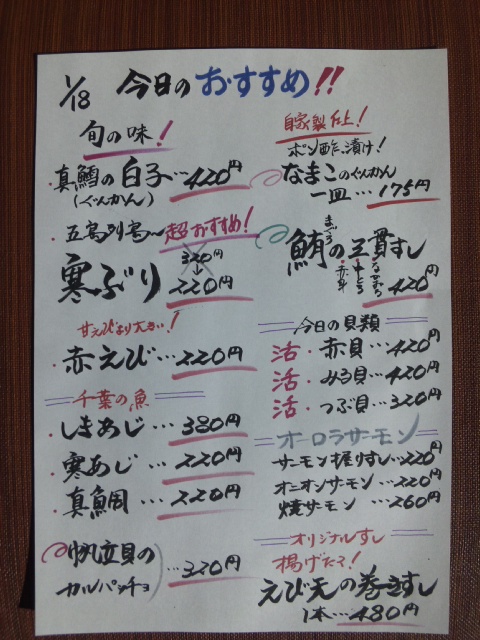 1/18 今日のおすすめ!!
旬の味!
真鱈の白子…420円
(ぐんかん)
五島列島〜超おすすめ!
320円
寒ぶり→220円
甘えびより大きい!
赤えび…220円
千葉の魚
しまあじ…380円
寒あじ…220円
真鯛…220円
帆立貝の
カルパッチョ…320円
自家製仕上!
ポン酢漬け!
なまこのぐんかん
一皿…175円
まぐろ
鮪の三貫すし
中とろ
赤身
420円
今日の貝類
活・赤貝…420円
活・みる貝…420円
活・つぶ貝…320円
オーロラサーモン
サーモン握りすし…220円
オニオンサーモン…220円
焼サーモン…260円
オリジナルすし
揚げたて!
えび天の巻きすし
1本…480円